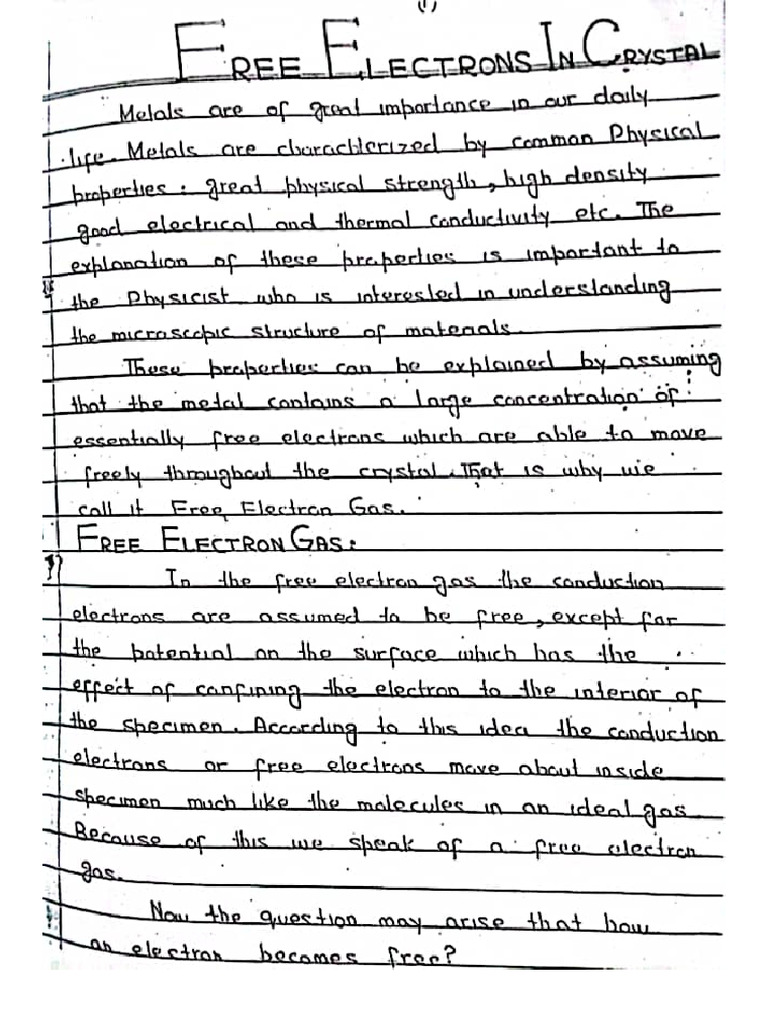 (1)
FREE ELECTRONS IN CRYSTAL
Metals are of great importance in our daily
life. Metals are characterized by common Physical
properties: great physical strength, high density
good electrical and thermal conductivity etc. The
explanation of these properties is important to
the Physicist who is interested in understanding
the microscopic structure of materials.
These properties can be explained by assuming
that the metal contains a large concentration of
essentially free electrons which are able to move
freely throughout the crystal. That is why we
call it Free Electron Gas.
FREE ELECTRON GAS:
In the free electron gas the conduction
electrons are assumed to be free, except for
the potential on the surface which has the
effect of confining the electron to the interior of
the specimen. According to this idea the conduction
electrons or free electrons move about inside
specimen much like the molecules in an ideal gas
Because of this we speak of a free electron
gas.
Now the question may arise that how
an electron becomes free?